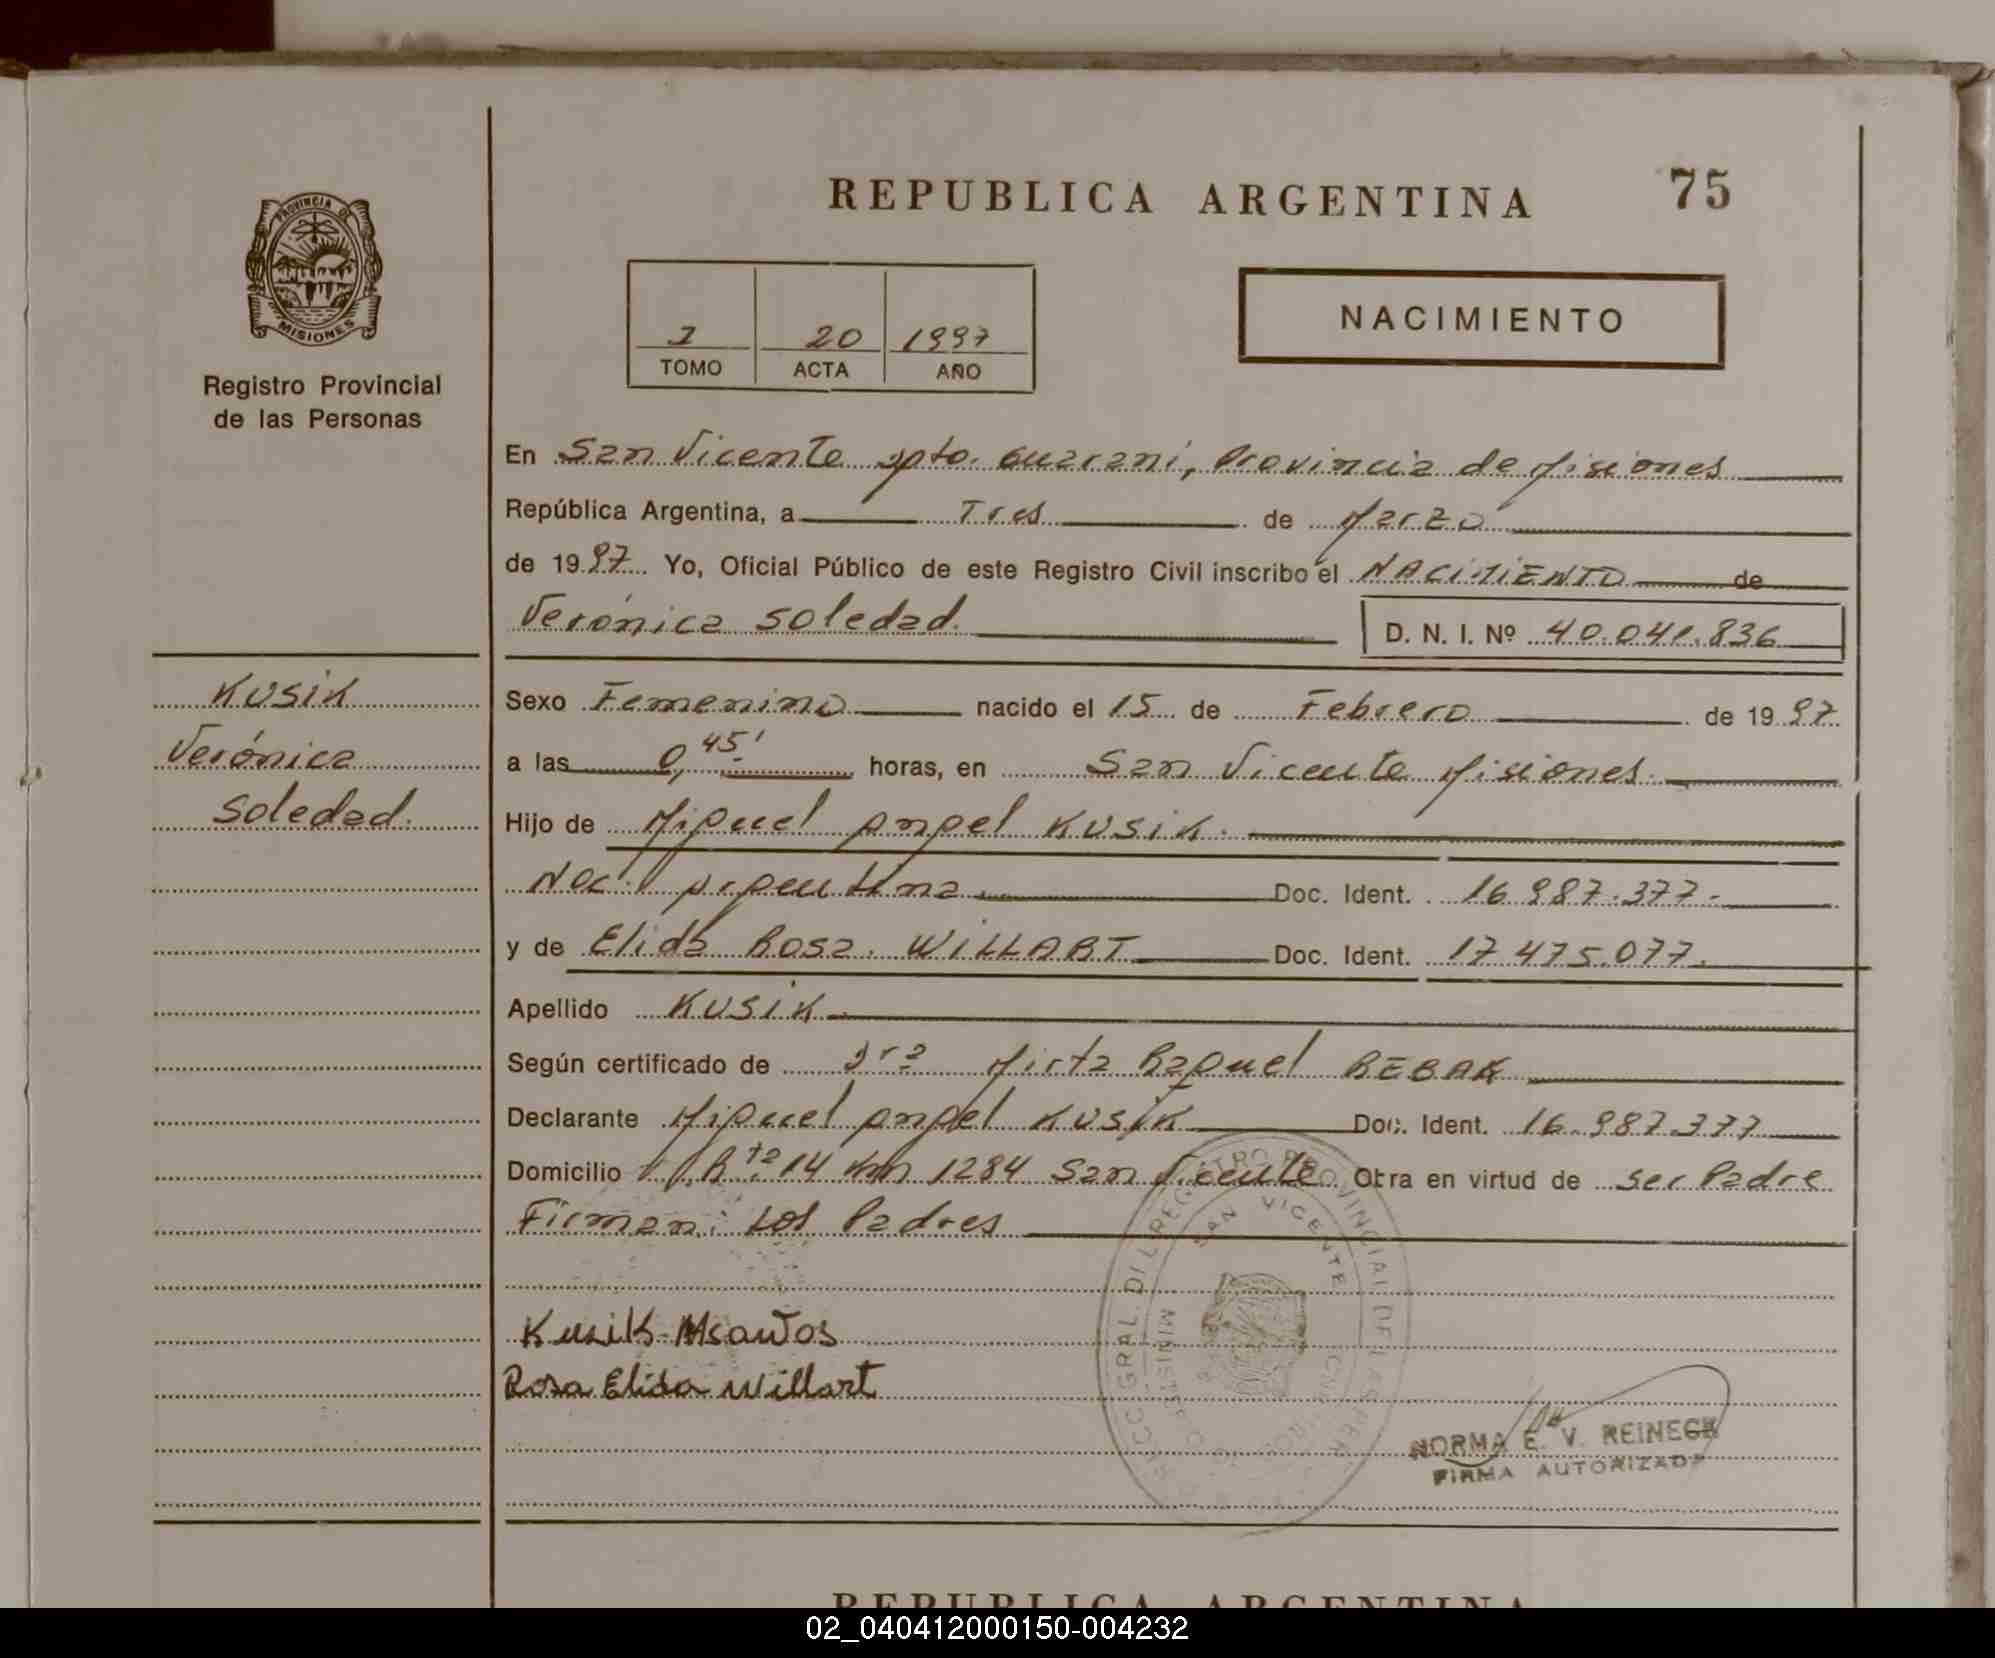 REPUBLICA ARGENTINA
75
PROVINCIA DE
MISIONES
Registro Provincial
de las Personas
1 20 1997
TOMO ACTA AÑO
NACIMIENTO
En San Vicente Dpto. Guaraní, Provincia de Misiones
República Argentina, a Tres de Marzo
de 1997 Yo, Oficial Público de este Registro Civil inscribo el NACIMIENTO de
Verónica Soledad. D. N. I. Nº 40.041.836
KUSIK
Verónica
Soledad.
Sexo Femenino nacido el 15 de Febrero de 1997
a las 0,45' horas, en San Vicente Misiones.
Hijo de Miguel Angel KUSIK.
Nac. Argentina. Doc. Ident. 16.987.377.
y de Elida Rosa. WILLART Doc. Ident. 17.475.077.
Apellido KUSIK
Según certificado de Dra Mirta Raquel REBAK
Declarante Miguel Angel KUSIK Doc. Ident. 16.987.377
Domicilio Rta 14 Km 1284 San Vicente Obra en virtud de ser Padre
Firman: Los Padres
Kusik
Rosa Elida Willart
SAN VICENTE
NORMA E. V. REINECK
FIRMA AUTORIZADA
REPUBLICA ARGENTINA
02_040412000150-004232